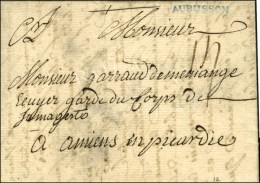 AUBUSSON
Monsieur
Monsieur garraud demeriange
Ecuyer garde du Corps de
Samagesté
a amiens enpicardie